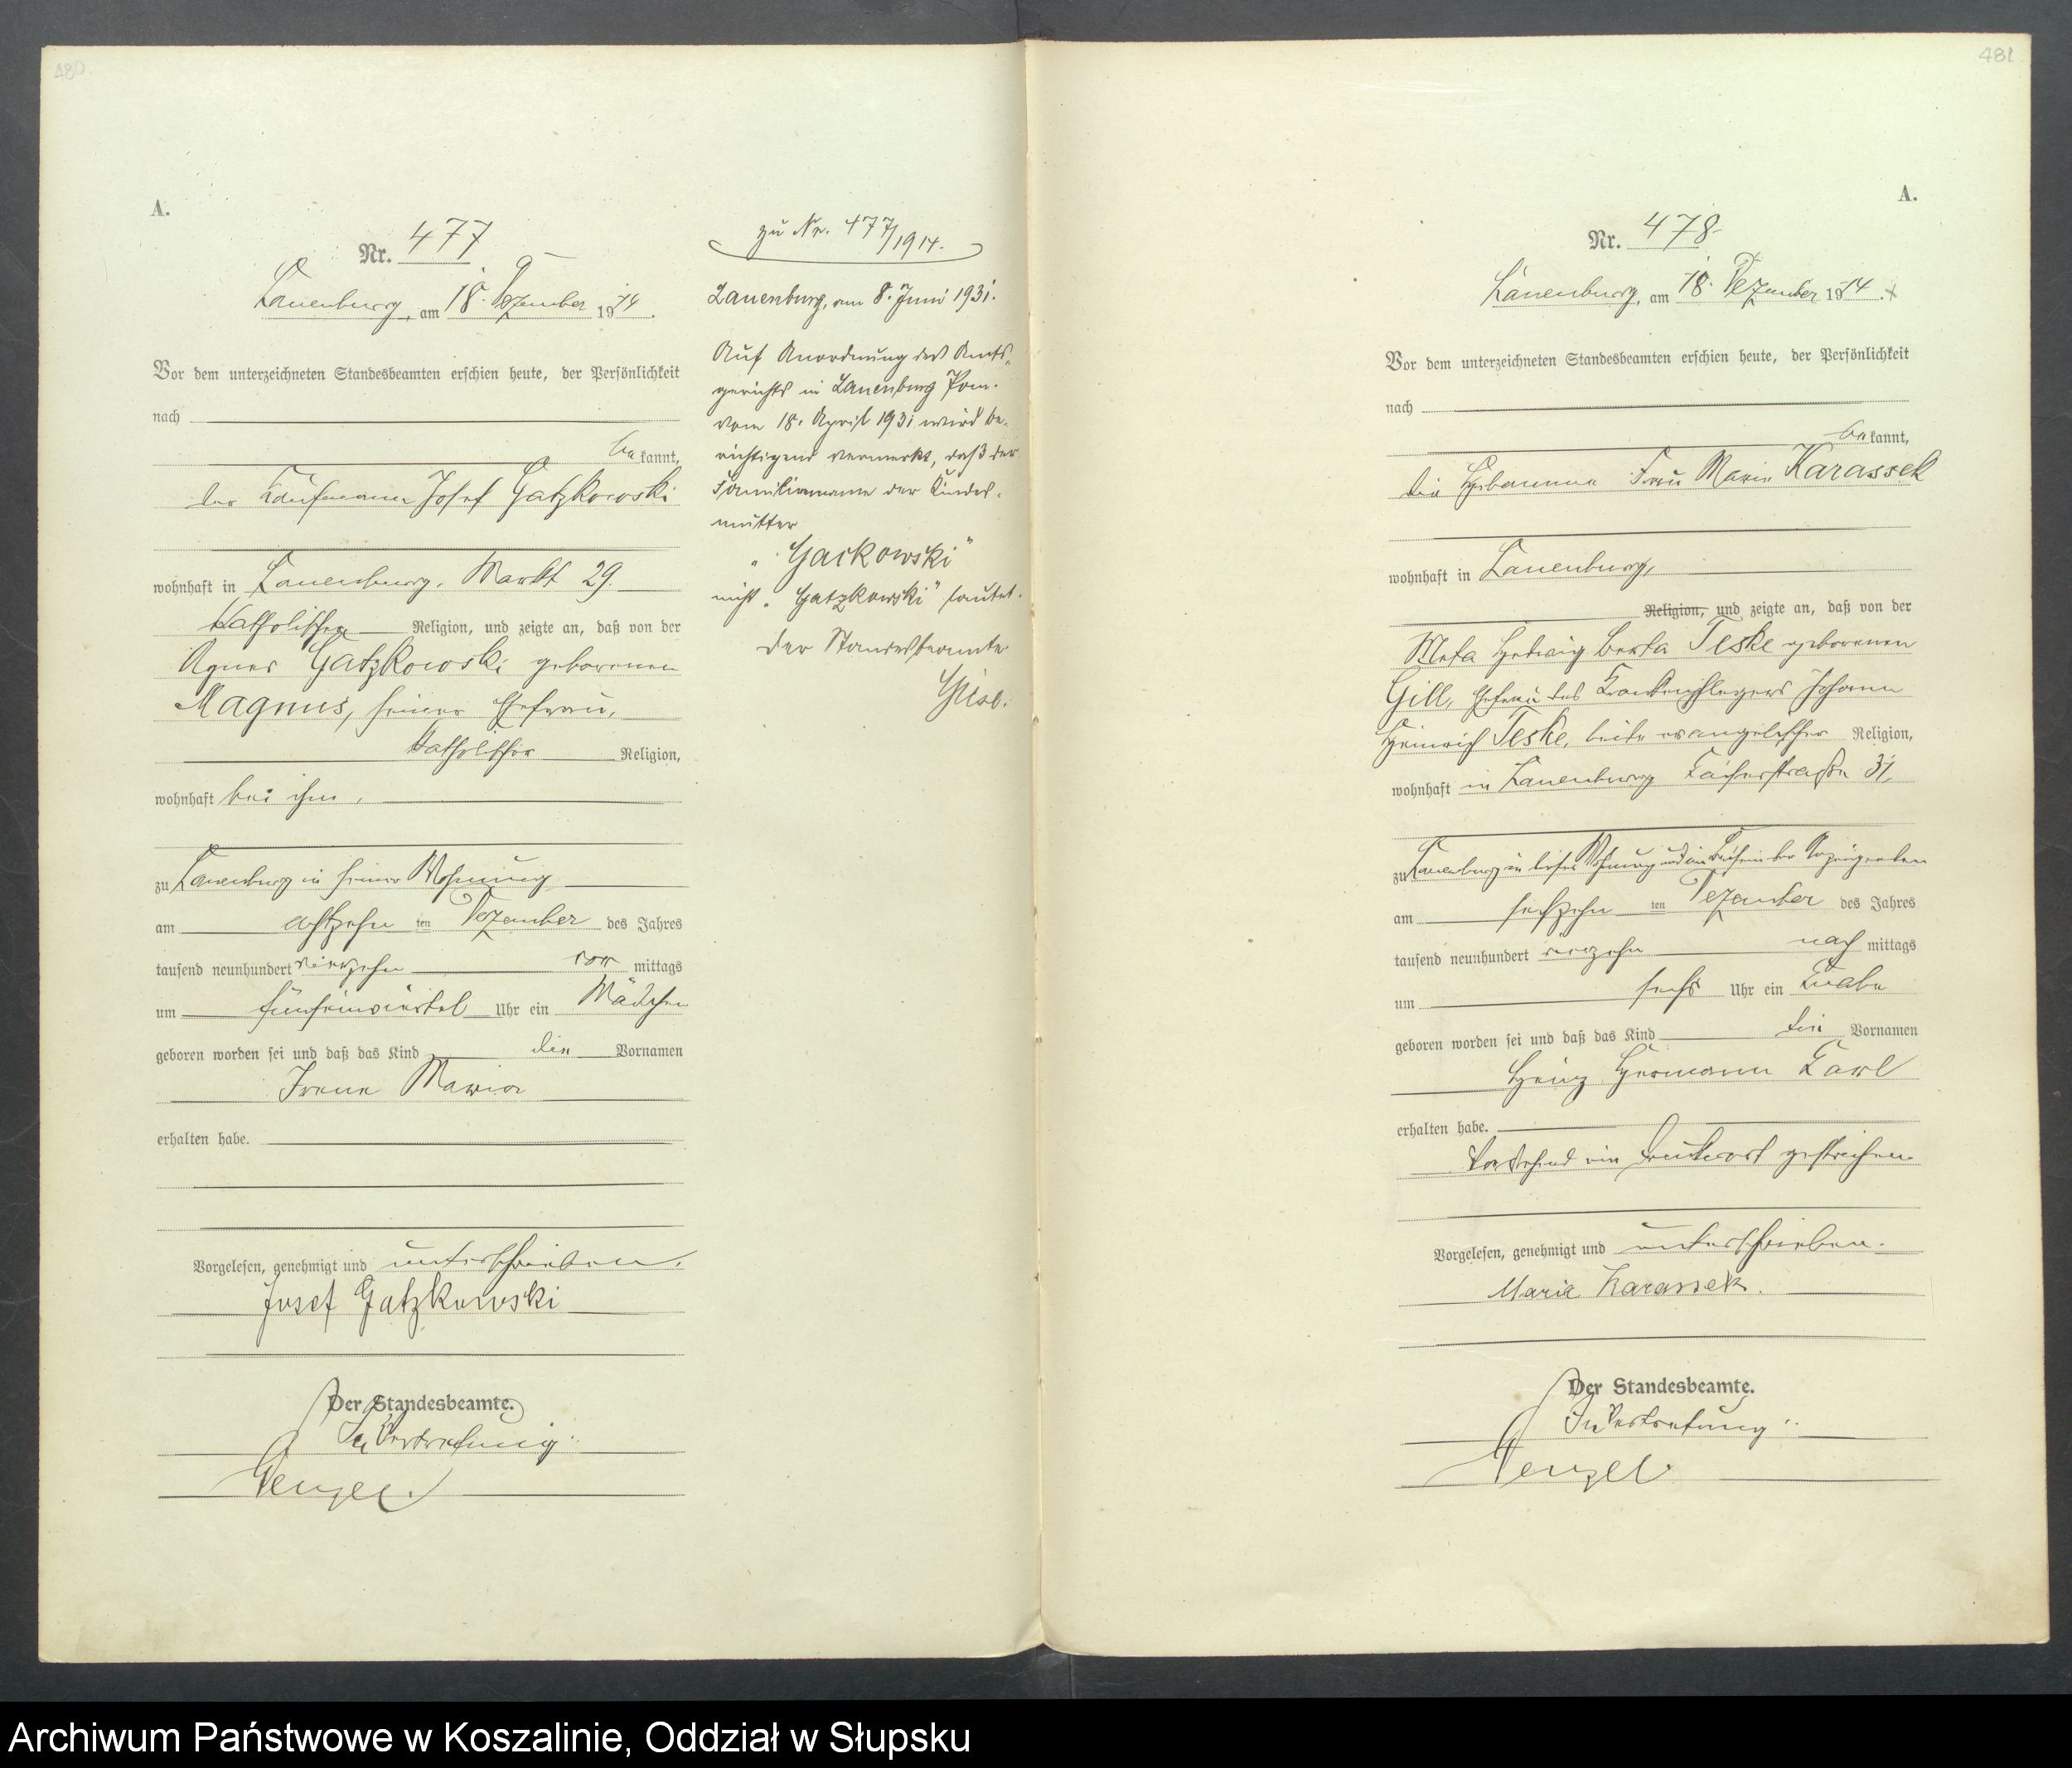 480.
A.
Nr. 477
Lauenburg, am 18. Dezember 1914.
Vor dem unterzeichneten Standesbeamten erschien heute, der Persönlichkeit
nach
bekannt,
der Kaufmann Josef Gatzkowski
wohnhaft in Lauenburg, Markt 29.
katholischer Religion, und zeigte an, daß von der
Agnes Gatzkowski geborenen
Magnus, seiner Ehefrau,
katholischer Religion,
wohnhaft bei ihm,
zu Lauenburg in seiner Wohnung
am achtzehn ten Dezember des Jahres
tausend neunhundert vierzehn vor mittags
um fünfeinviertel Uhr ein Mädchen
geboren worden sei und daß das Kind die Vornamen
Irene Maria
erhalten habe.
Vorgelesen, genehmigt und unterschrieben.
Josef Gatzkowski
Der Standesbeamte.
In Vertretung:
Wenzel.
zu Nr. 477/1914.
Lauenburg, am 8. Juni 1931.
Auf Anordnung des Amts-
gerichts in Lauenburg Pom.
vom 18. April 1931 wird be-
richtigend vermerkt, daß der
Familienname der Kindes-
mutter
"Gackowski"
nicht "Gatzkowski" lautet.
Der Standesbeamte
481
A.
Nr. 478
Lauenburg, am 18. Dezember 1914.
Vor dem unterzeichneten Standesbeamten erschien heute, der Persönlichkeit
nach
bekannt,
die Hebamme Frau Marie Karassek
wohnhaft in Lauenburg,
Religion, und zeigte an, daß von der
Meta Hedwig Berta Teske geborenen
Gill, Ehefrau des Krankenpflegers Johann
Heinrich Teske, beide evangelischer Religion,
wohnhaft in Lauenburg 31,
zu Lauenburg in dieser Wohnung und im Beisein der Anzeigenden
am sechzehn ten Dezember des Jahres
tausend neunhundert vierzehn nach mittags
um sechs Uhr ein Knabe
geboren worden sei und daß das Kind die Vornamen
Heinz Hermann Karl
erhalten habe.
Vorstehend ein Druckwort gestrichen.
Vorgelesen, genehmigt und unterschrieben.
Marie Karassek.
Der Standesbeamte.
In Vertretung:
Wenzel.
Archiwum Państwowe w Koszalinie, Oddział w Słupsku